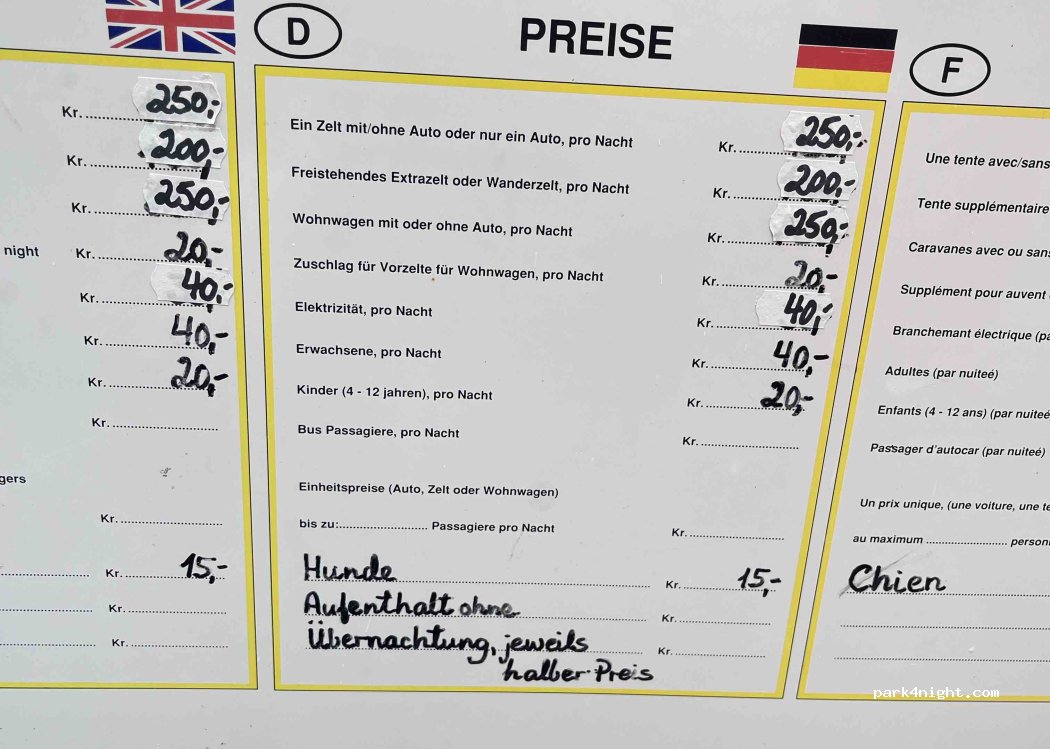 D
PREISE
F
Kr. 250,-
Kr. 200,-
Kr. 250,-
night Kr. 20,-
Kr. 40,-
Kr. 40,-
Kr. 20,-
Kr.
gers
Kr.
Kr. 15,-
Kr.
Kr.
Ein Zelt mit/ohne Auto oder nur ein Auto, pro Nacht Kr. 250,-
Freistehendes Extrazelt oder Wanderzelt, pro Nacht Kr. 200,-
Wohnwagen mit oder ohne Auto, pro Nacht Kr. 250,-
Zuschlag für Vorzelte für Wohnwagen, pro Nacht Kr. 20,-
Elektrizität, pro Nacht Kr. 40,-
Erwachsene, pro Nacht Kr. 40,-
Kinder (4 - 12 jahren), pro Nacht Kr. 20,-
Bus Passagiere, pro Nacht Kr.
Einheitspreise (Auto, Zelt oder Wohnwagen)
bis zu: Passagiere pro Nacht Kr.
Hunde Kr. 15,-
Aufenthalt ohne Kr.
Übernachtung, jeweils Kr.
halber Preis
Une tente avec/sans
Tente supplémentaire
Caravanes avec ou sans
Supplément pour auvent
Branchemant électrique (pa
Adultes (par nuiteé)
Enfants (4 - 12 ans) (par nuiteé
Passager d'autocar (par nuiteé)
Un prix unique, (une voiture, une te
au maximum person
Chien
park4night.com